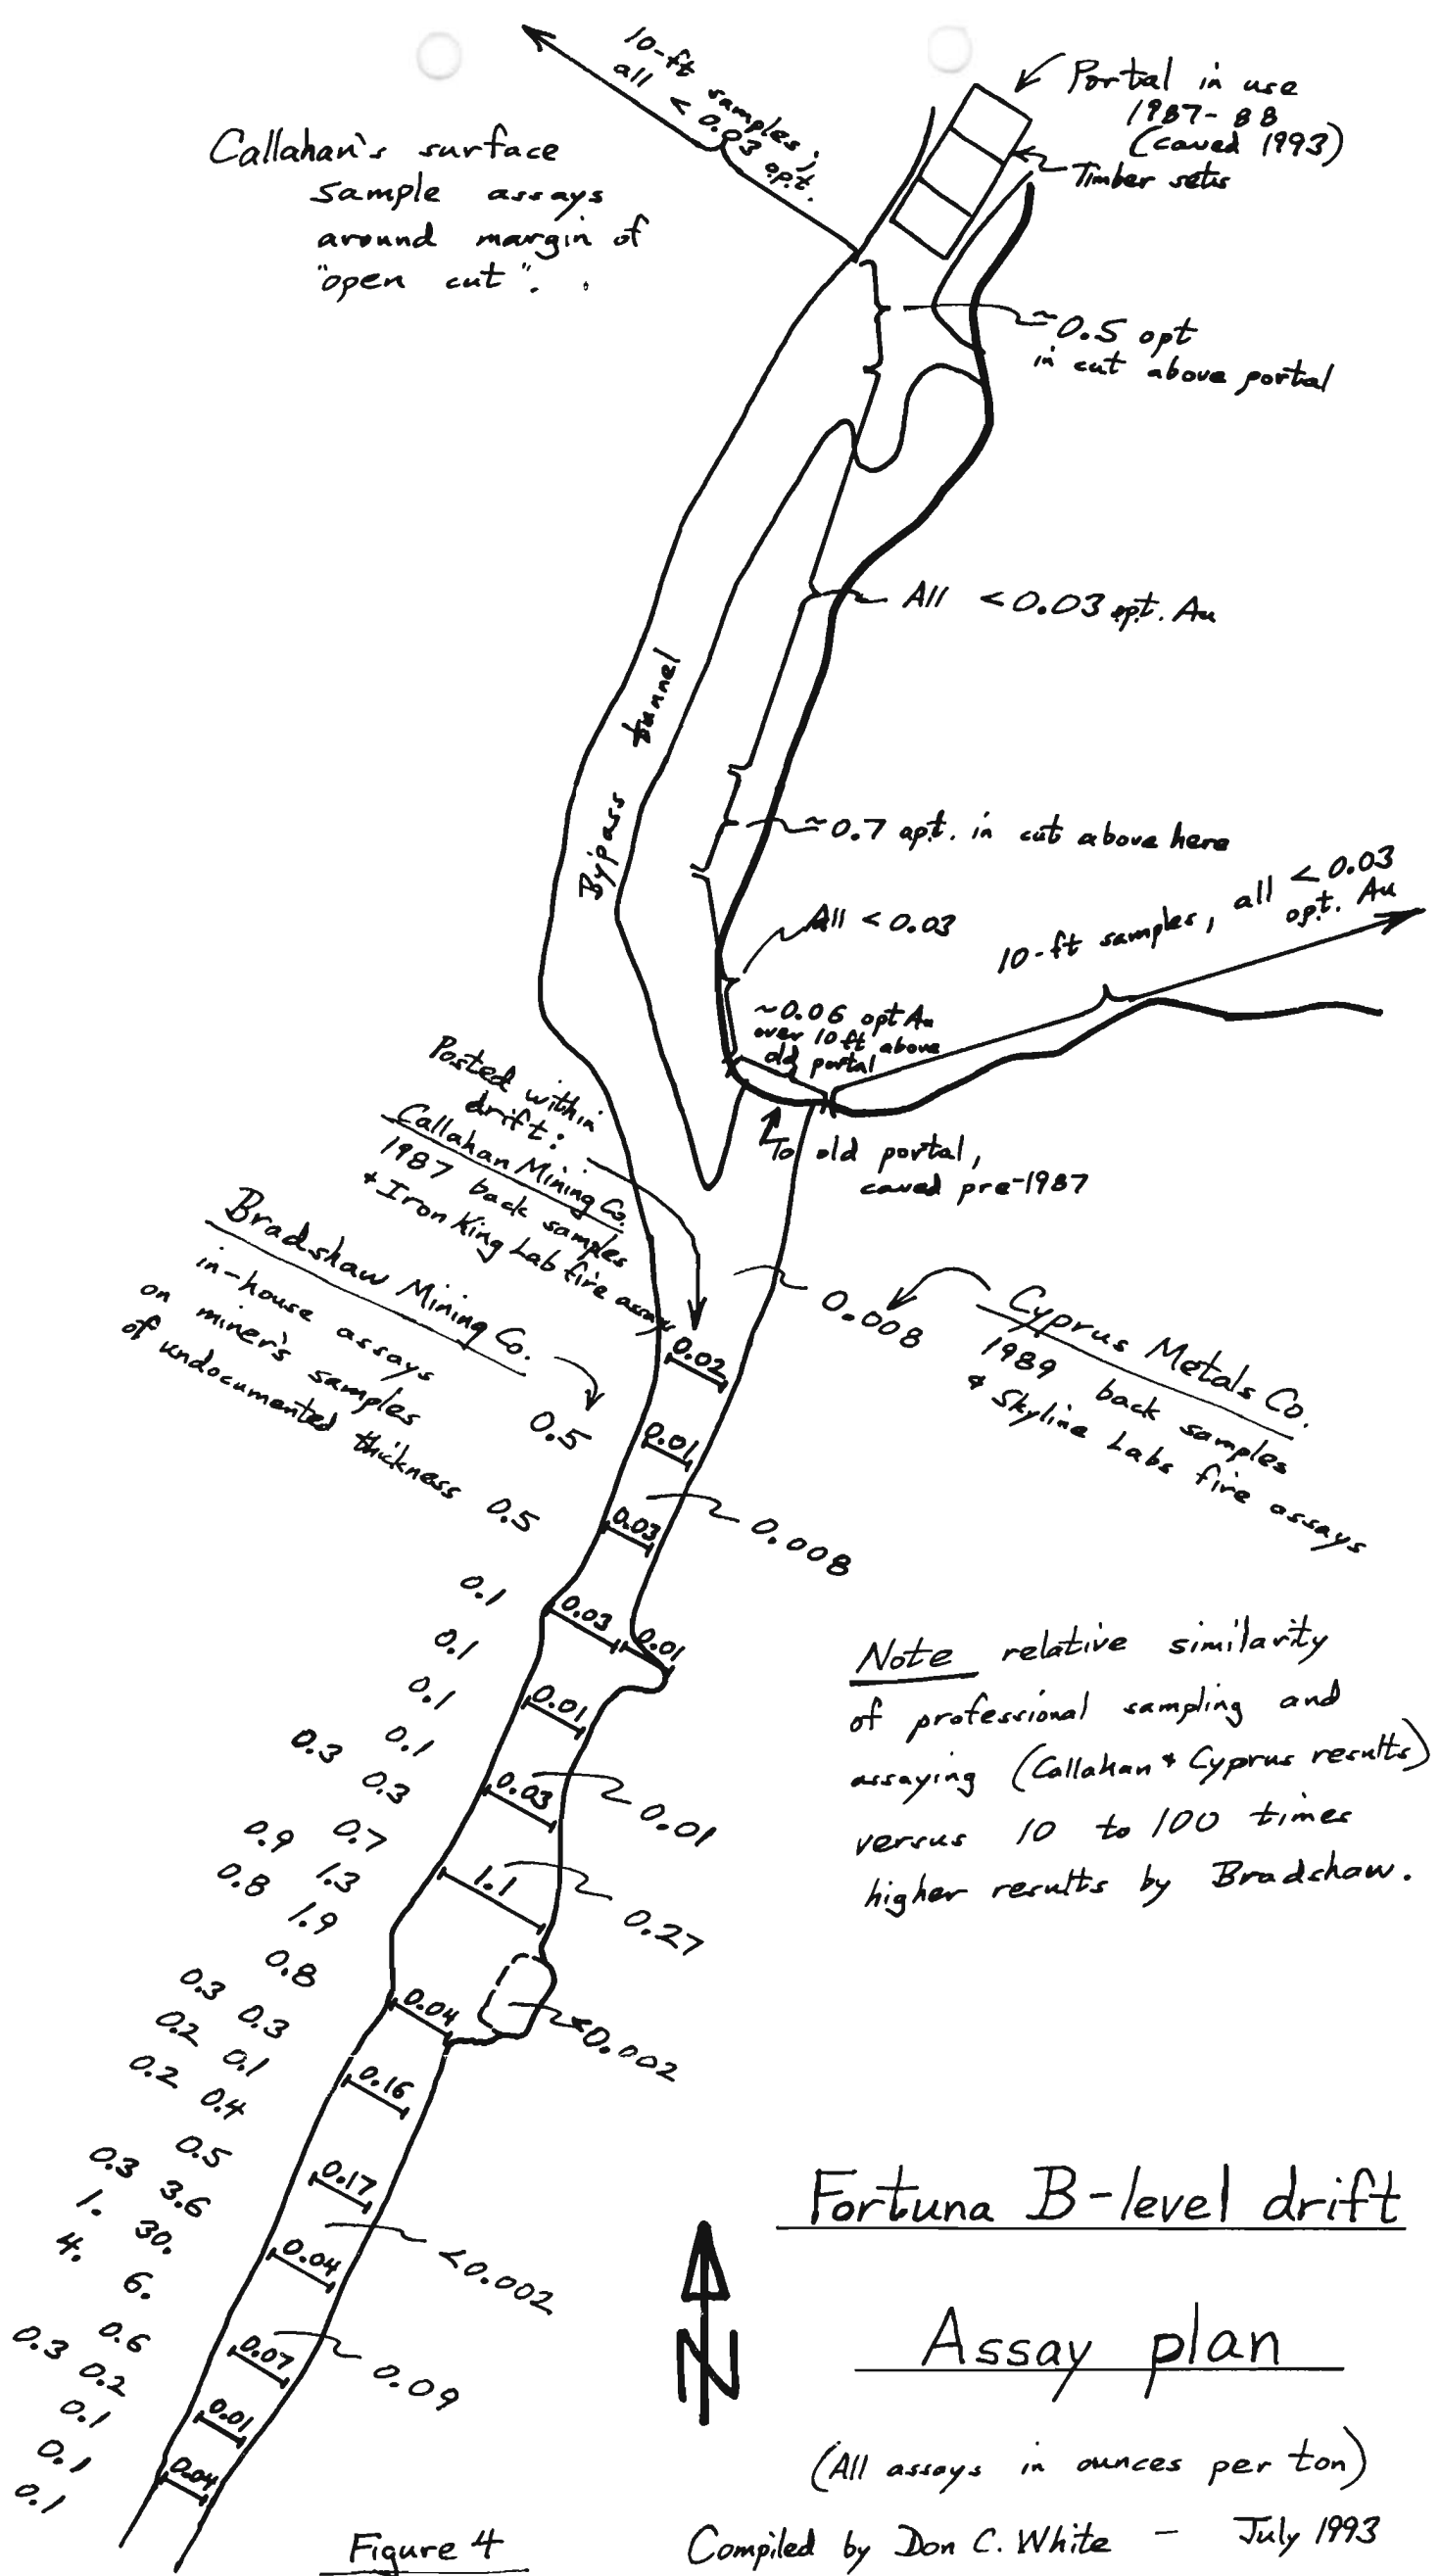 10-ft samples;
all < 0.03 opt.
Portal in use
1987-88
(caved 1993)
Timber sets
Callahan's surface
sample assays
around margin of
"open cut".
≈0.5 opt
in cut above portal
All <0.03 opt. Au
Bypass tunnel
≈0.7 opt. in cut above here
All < 0.03
10-ft samples, all < 0.03
opt. Au
~0.06 opt Au
over 10 ft above
old portal
To old portal,
caved pre-1987
Posted within
drift:
Callahan Mining Co.
1987 back samples
+ Iron King Lab fire assay
Bradshaw Mining Co.
in-house assays
on miner's samples
of undocumented thickness
Cyprus Metals Co.
1989 back samples
& Skyline Labs fire assays
0.008
0.02
0.5
0.01
0.5
0.03
0.008
0.1
0.03
0.01
0.1
0.1
0.01
0.3 0.1
0.3
0.03
0.01
0.9 0.7
0.8 1.3
1.9
1.1
0.27
0.8
0.3 0.3
0.04
<0.002
0.2 0.1
0.2 0.4
0.16
0.5
0.3 3.6
0.17
1. 30.
4. 6.
0.04
<0.002
0.6
0.3 0.2
0.07
0.09
0.1
0.01
0.1
0.04
0.1
Note relative similarity
of professional sampling and
assaying (Callahan & Cyprus results)
versus 10 to 100 times
higher results by Bradshaw.
Fortuna B-level drift
Assay plan
N
(All assays in ounces per ton)
Figure 4
Compiled by Don C. White - July 1993